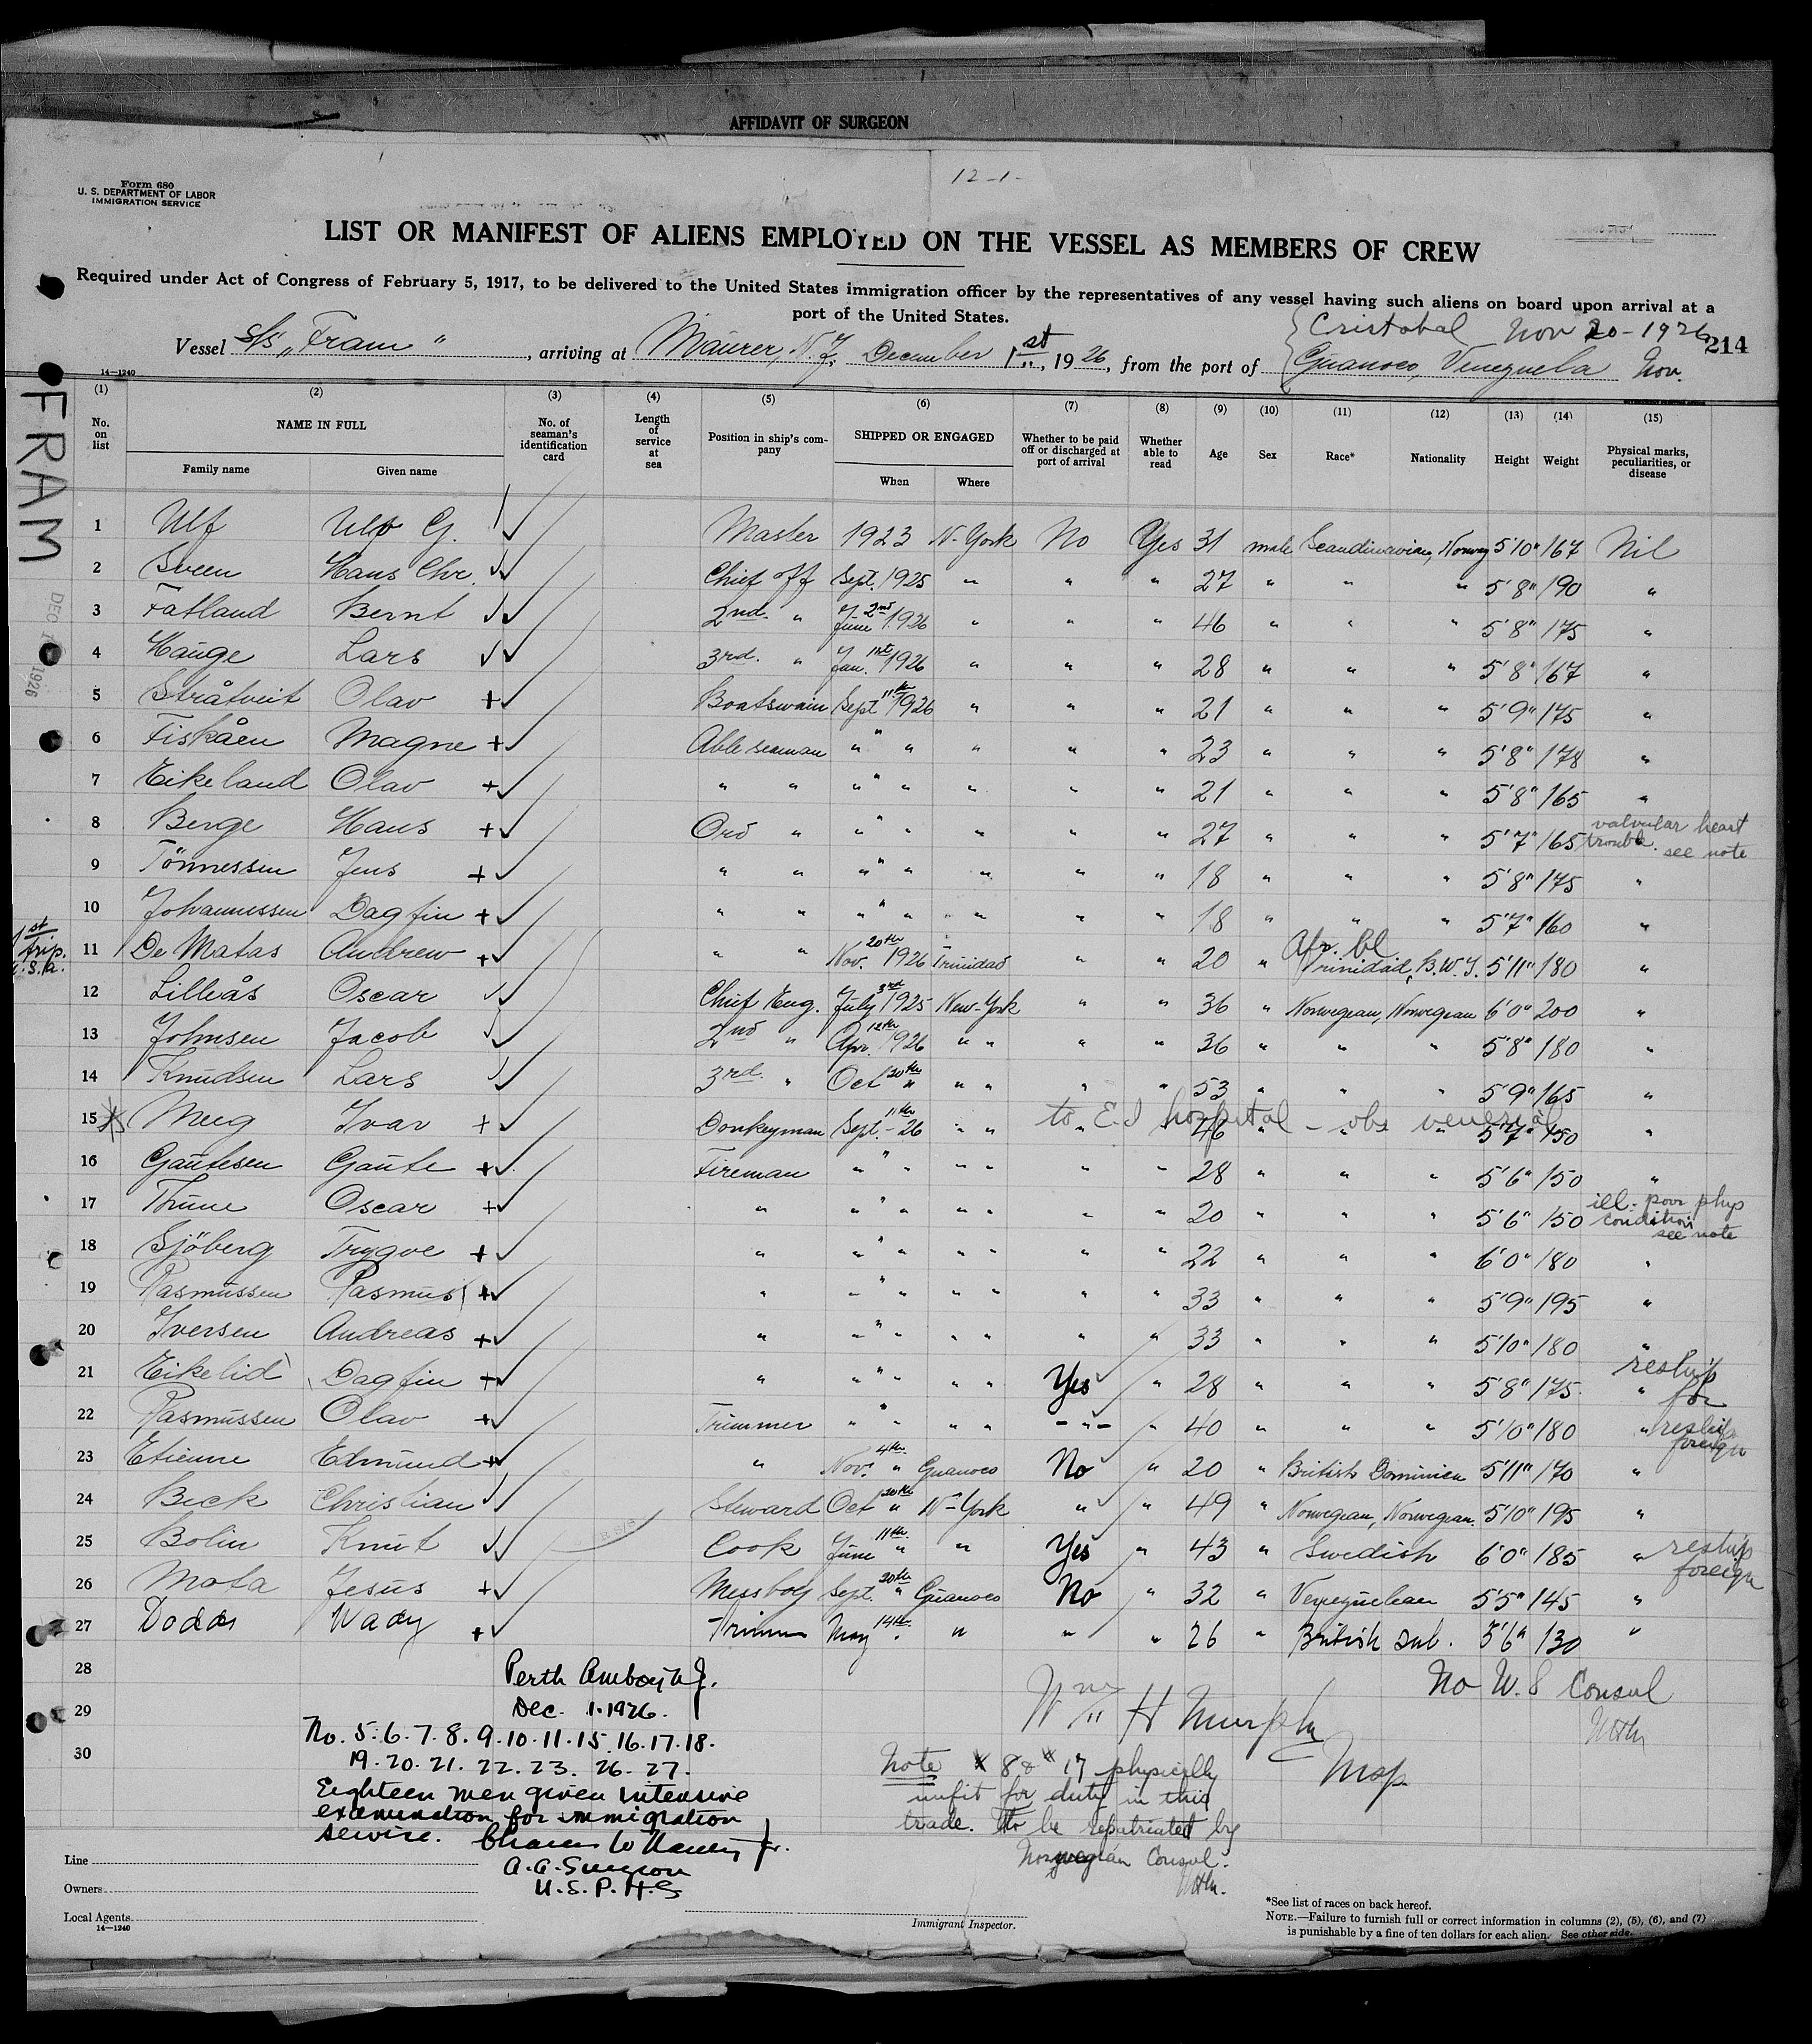 AFFIDAVIT OF SURGEON
12-1-
Form 680
U. S. DEPARTMENT OF LABOR
IMMIGRATION SERVICE
LIST OR MANIFEST OF ALIENS EMPLOYED ON THE VESSEL AS MEMBERS OF CREW
Required under Act of Congress of February 5, 1917, to be delivered to the United States immigration officer by the representatives of any vessel having such aliens on board upon arrival at a
port of the United States.
Cristobal Nov 20-1926
Vessel S/s "Fram", arriving at Maurer, N.J. December 1st, 1926, from the port of Guanoco, Venezuela Nov. 214
14—1240
FRAM
DEC 1 1926
(1) (2) (3) (4) (5) (6) (7) (8) (9) (10) (11) (12) (13) (14) (15)
No. on list NAME IN FULL Family name Given name No. of seaman's identification card Length of service at sea Position in ship's company SHIPPED OR ENGAGED When Where Whether to be paid off or discharged at port of arrival Whether able to read Age Sex Race* Nationality Height Weight Physical marks, peculiarities, or disease
1 Ulf Ulf G. Master 1923 N-York No Yes 31 male Scandinavian, Norweg 5'10" 167 Nil
2 Sveen Hans Chr. Chief off Sept. 1925 " " " 27 " " " 5'8" 190 "
3 Fatland Bernt 2nd. " June 2nd 1926 " " " 46 " " " 5'8" 175 "
4 Hauge Lars 3rd. " Jan. 1st 1926 " " " 28 " " " 5'8" 167 "
5 Stråtveit Olav + Boatswain Sept 11th 1926 " " " 21 " " " 5'9" 175 "
6 Fiskåen Magne + Able seaman " " " " " 23 " " " 5'8" 178 "
7 Eikeland Olav + " " " " " " " 21 " " " 5'8" 165 "
8 Berge Hans + Ord " " " " " " 27 " " " 5'7" 165 valvular heart trouble. see note
9 Tönnessen Jens + " " " " " " " 18 " " " 5'8" 175 "
10 Johannessen Dagfin + " " " " " " " 18 " " " 5'7" 160 "
1st trip. U.S.A.
11 De Matas Andrew + " " Nov. 20th 1926 Trinidad " " 20 " Afr. bl Trinidad, B.W.I. 5'11" 180 "
12 Lilleås Oscar Chief Eng. July 3rd 1925 New-York " " 36 " Norwegian, Norwegian 6'0" 200 "
13 Johnsen Jacob 2nd " Apr. 12th 1926 " " " " 36 " " " 5'8" 180 "
14 Knudsen Lars 3rd. " Oct 20th " " " " " 53 " " " 5'9" 165 "
15 Ivar + Donkeyman Sept. 11th - 26 " " " " 46 " " " 5'7" 150 "
to E.I hospital - obs venereal
16 Gautesen Gaute + Fireman " " " " " " 28 " " " 5'6" 150 "
17 Thune Oscar + " " " " " " " 20 " " " 5'6" 150 ill. poor phys condition see note
18 Sjöberg Trygve + " " " " " " " 22 " " " 6'0" 180 "
19 Rasmussen Rasmus + " " " " " " " 33 " " " 5'9" 195 "
20 Iversen Andreas + " " " " " " " 33 " " " 5'10" 180 "
21 Eikelid Dagfin + " " " " " Yes " 28 " " " 5'8" 175 " reship for
22 Rasmussen Olav + Trimmer " " " " -"- " 40 " " " 5'10" 180 " reship foreign
23 Etienne Edmund + " Nov. 4th " Guanoco No " 20 " British Dominien 5'11" 170 "
24 Beck Christian Steward Oct 20th " N-York " " 49 " Norwegian, Norwegian. 5'10" 195 "
25 Bolin Knut Cook June 11th " " Yes " 43 " Swedish 6'0" 185 " reship foreign
26 Mata Jesus + Messboy Sept. 20th " Guanoco No " 32 " Venezuelean 5'5" 145 "
27 Dodds Wady + Trimm May 14th " " " " 26 " British sub. 5'6" 130 "
28
29
30
Perth Amboy N.J.
Dec. 1. 1926.
No. 5. 6. 7. 8. 9. 10. 11. 15. 16. 17. 18.
19. 20. 21. 22. 23. 26. 27.
Eighteen men given intensive
examination for immigration
service.
Jr.
A. A. Surgeon
U. S. P. H. S
Wm H Murphy
No U.S Consul
Note # 8 & # 17 physically
unfit for duty in this
trade. To be repatriated by
Norwegian Consul.
Line
Owners
Local Agents
14—1240
Immigrant Inspector.
*See list of races on back hereof.
NOTE.—Failure to furnish full or correct information in columns (2), (5), (6), and (7)
is punishable by a fine of ten dollars for each alien. See other side.